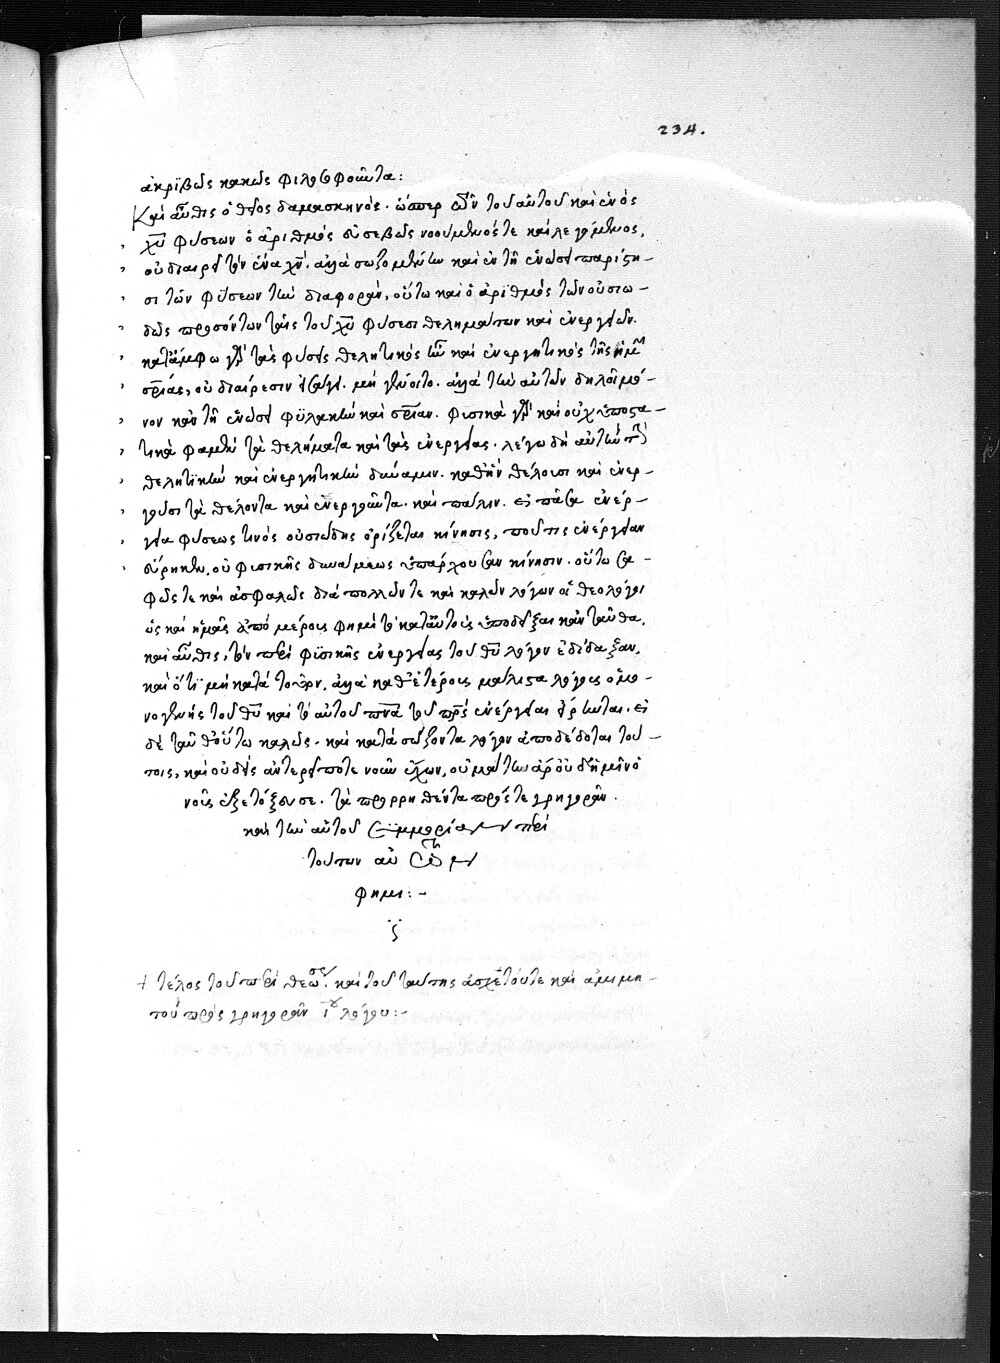 234.
ἀκριβῶς κακῶς φιλοσοφοῦντα:
Καὶ αὖθις ὁ θεῖος δαμασκηνός. ὥσπερ οὖν τοῦ αὐτοῦ καὶ ἑνὸς
χυ φύσεων ὁ ἀριθμὸς εὐσεβῶς νοούμενός τε καὶ λεγόμενος,
οὐ διαιρεῖ τὸν ἕνα χν. ἀλλὰ σωζομένην καὶ ἐν τῇ ἑνώσει παρίστη-
σι τῶν φύσεων τὴν διαφοράν, οὕτω καὶ ὁ ἀριθμὸς τῶν οὐσιω-
δῶς προσόντων ταῖς τοῦ χυ φύσεσι θελημάτων καὶ ἐνεργειῶν.
κατἄμφω γὰρ τὰς φύσεις θελητικὸς ἦν καὶ ἐνεργητικὸς τῆς ἡμῶν
σρίας, οὐ διαίρεσιν εἰσάγει. μὴ γένοιτο. ἀλλὰ τὴν αὐτῶν δηλοῖ μό-
νον κἀν τῇ ἑνώσει φυλακὴν καὶ σρίαν. φυσικὰ γὰρ καὶ οὐχ ὑποστα-
τικὰ φαμὲν τὰ θελήματα καὶ τὰς ἐνεργείας. λέγω δὴ αὐτὴν τὴν
θελητικὴν καὶ ἐνεργητικὴν δύναμιν. καθ' ἣν θέλουσι καὶ ἐνερ-
γοῦσι τὰ θέλοντα καὶ ἐνεργοῦντα. καὶ πάλιν. εἰ πᾶσα ἐνέρ-
γεια φύσεως τινὸς οὐσιώδης ὁρίζεται κίνησις, ποῦ τις ἐνέργειαν
εὕρηκεν, οὐ φυσικῆς δυνάμεως ὑπάρχουσαν κίνησιν. οὕτω σα-
φῶς τε καὶ ἀσφαλῶς διὰ πολλῶν τε καὶ καλῶν λόγων οἱ θεολόγοι
ὡς καὶ ἡμᾶς ἀπὸ μέρους φημὶ τὸ κατ' αὐτοὺς ὑποδεῖξαι κἀνταῦθα,
καὶ αὖθις, τὸν περὶ φυσικῆς ἐνεργείας τοῦ θυ λόγον ἐδίδαξαν,
καὶ ὅτι μὴ κατὰ ἀλλὰ καθ' ἑτέρους μάλιστα λόγους ὁ μο-
νογενὴς τοῦ θυ καὶ τὸ αὐτοῦ πνα τοῦ πρς ἐνέργειαι εἴρηνται. εἰ
δὲ ταῦθ' οὕτω καλῶς. καὶ κατὰ σώζοντα λόγον ἀποδέδοται τού-
τοις, καὶ οὐδεὶς ἀντερεῖ ποτε νοῦν ἔχων, οὐ μάτην ἄρ' ὁ δεῖμινὸ
νοῦς ἐξετόξευσε. τὰ προρρηθέντα πρός τε γρηγορᾶν.
καὶ τὴν αὐτοῦ συμμορίαν περὶ
τούτων αὐ
φημι: -
ζ
+ τέλος τοῦ περὶ θεώσεως. καὶ τοῦ ταύτης ἀσχέτου τε καὶ ἀμιμή-
του πρὸς γρηγορᾶν λόγου: -